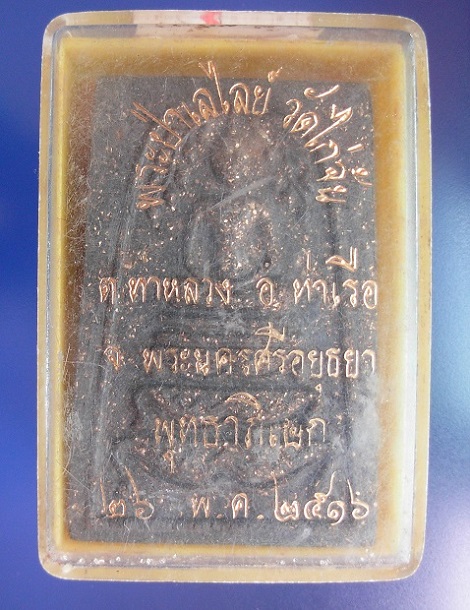 พระป่าเลไลย์ วัดไก่จ้น
ต.ท่าหลวง อ.ท่าเรือ
จ.พระนครศรีอยุธยา
พุทธาภิเษก
๒๖ พ.ค.๒๕๑๖